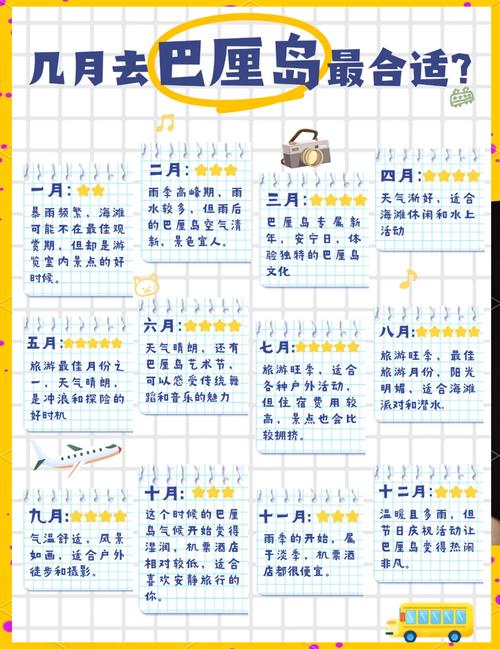 几月去巴厘岛最合适?
一月:
暴雨频繁,海滩
可能不在最佳观
赏期,但却是游
览室内景点的好
时候。
二月:
雨季高峰期,雨
水较多,但雨后的
巴厘岛空气清
新,景色宜人。
三月:
巴厘岛专属新
年,安宁日,体
验独特的巴厘岛
文化
四月:
天气渐好,适合
海滩休闲和水上
活动
五月:
旅游最佳月份之
一,天气晴朗,
是冲浪和探险的
好时机
六月:
天气晴朗,还有
巴厘岛艺术节,
可以感受传统舞
蹈和音乐的魅力
七月:
旅游旺季,适合
各种户外活动,
但住宿费用较
高,景点也会比
较拥挤。
八月:
旅游旺季,最佳
旅游月份,阳光
明媚,适合海滩
派对和潜水.
九月:
气温舒适,风景
如画,适合户外
徒步和摄影。
十月:
这个时候的巴厘
岛气候开始变得
湿润,机票酒店
相对较低,适合
喜欢安静旅行的
你。
十一月:
雨季的开始,属
于淡季,机票酒
店都很便宜。
十二月:
温暖且多雨,但
节日庆祝活动让
巴厘岛变得热闹
非凡。